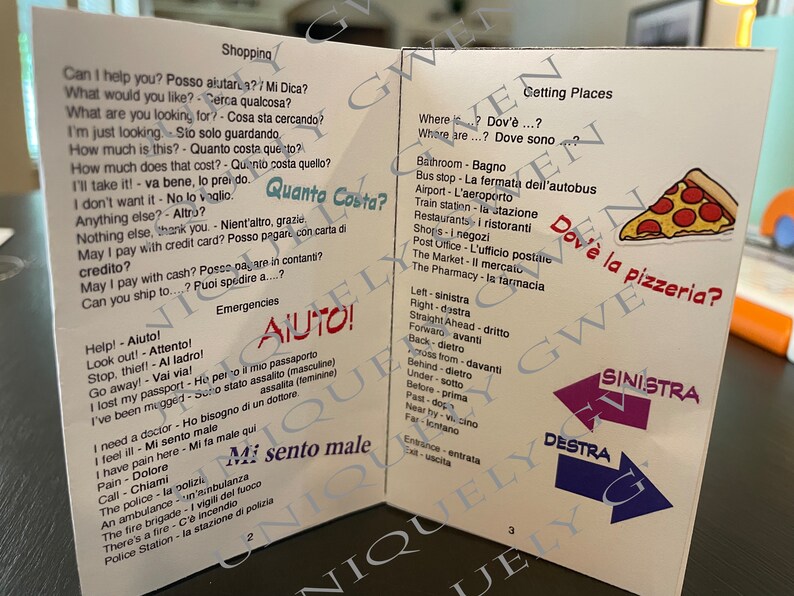 Shopping
Can I help you? Posso aiutarla? / Mi Dica?
What would you like? - Cerca qualcosa?
What are you looking for? - Cosa sta cercando?
I'm just looking. - Sto solo guardando.
How much is this? - Quanto costa questo?
How much does that cost? - Quanto costa quello?
I'll take it! - va bene, lo prendo.
I don't want it - No lo voglio.
Anything else? - Altro?
Nothing else, thank you. - Nient'altro, grazie.
May I pay with credit card? Posso pagare con carta di
credito?
May I pay with cash? Posso pagare in contanti?
Can you ship to....? Puoi spedire a....?
Quanto Costa?
Emergencies
AIUTO!
Help! - Aiuto!
Look out! - Attento!
Stop, thief! - Al ladro!
Go away! - Vai via!
I lost my passport - Ho perso il mio passaporto
I've been mugged - Sono stato assalito (masculine)
assalita (feminine)
I need a doctor - Ho bisogno di un dottore.
I feel ill - Mi sento male
I have pain here - Mi fa male qui
Pain - Dolore
Call - Chiami
The police - la polizia
An ambulance - un'ambulanza
The fire brigade - I vigili del fuoco
There's a fire - C'è incendio
Police Station - la stazione di polizia
Mi sento male
2
Getting Places
Where is ...? Dov'è ...?
Where are ...? Dove sono ...?
Bathroom - Bagno
Bus stop - La fermata dell'autobus
Airport - L'aeroporto
Train station - la stazione
Restaurants - i ristoranti
Shops - i negozi
Post Office - L'ufficio postale
The Market - Il mercato
The Pharmacy - la farmacia
Dov'è la pizzeria?
Left - sinistra
Right - destra
Straight Ahead - dritto
Forward - avanti
Back - dietro
Across from - davanti
Behind - dietro
Under - sotto
Before - prima
Past - dopo
Near by - vicino
Far - lontano
Entrance - entrata
Exit - uscita
SINISTRA
DESTRA
3
UNIQUELY GWEN
UNIQUELY GWEN
UNIQUELY GWEN
UNIQUELY GWEN
UNIQUELY GW
UNIQUELY G.